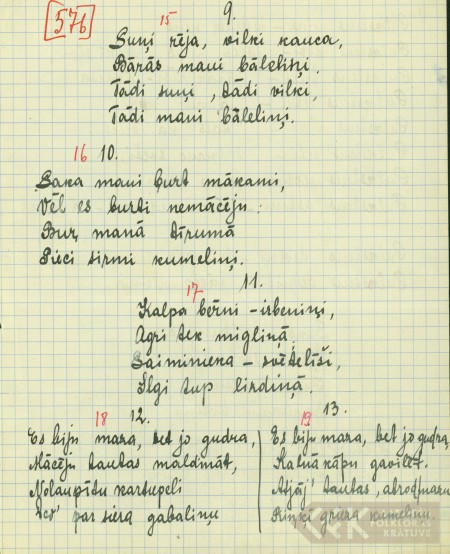 576
15 9.
Suņi rēja, vilki kauca,
Bārās mani bāleliņi.
Tādi suņi, tādi vilki,
Tādi mani bāleliņi.
16 10.
Saka mani burt mākami,
Vēl es burti nemācēju:
Buŗ manā tīrumā
Pieci sirmi kumeliņi.
17 11.
Kalpa bērni - irbeniņi,
Agri tek migliņā,
Saiminieka - svētelīši,
Ilgi tup lizdiņā.
18 12.
Es biju maza, bet jo gudra,
Mācēju tautas maldināt,
Nolaupītu kartupeli
par siera gabaliņu
19 13.
Es biju maza, bet jo gudra,
Kalnā kāpu gavilēt.
Atjāj' tautas,
kumeliņu.
FOLKLORAS
KRĀTUVE